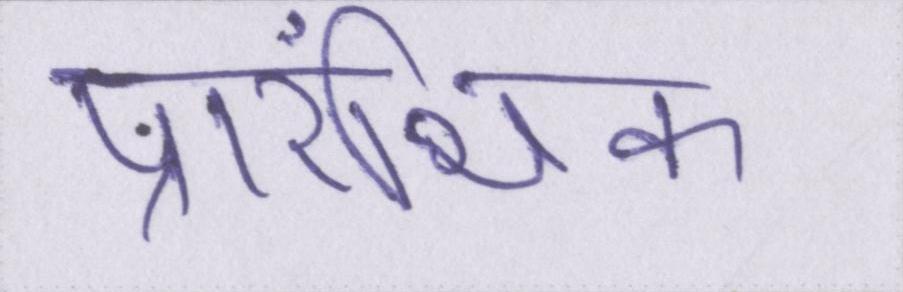 प्रारंभिक